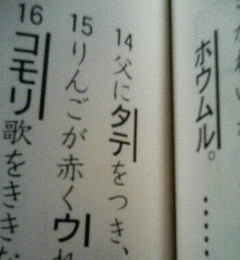 ホウムル。……
14 父にタテをつき、
15 りんごが赤くウ
16 コモリ歌をきき